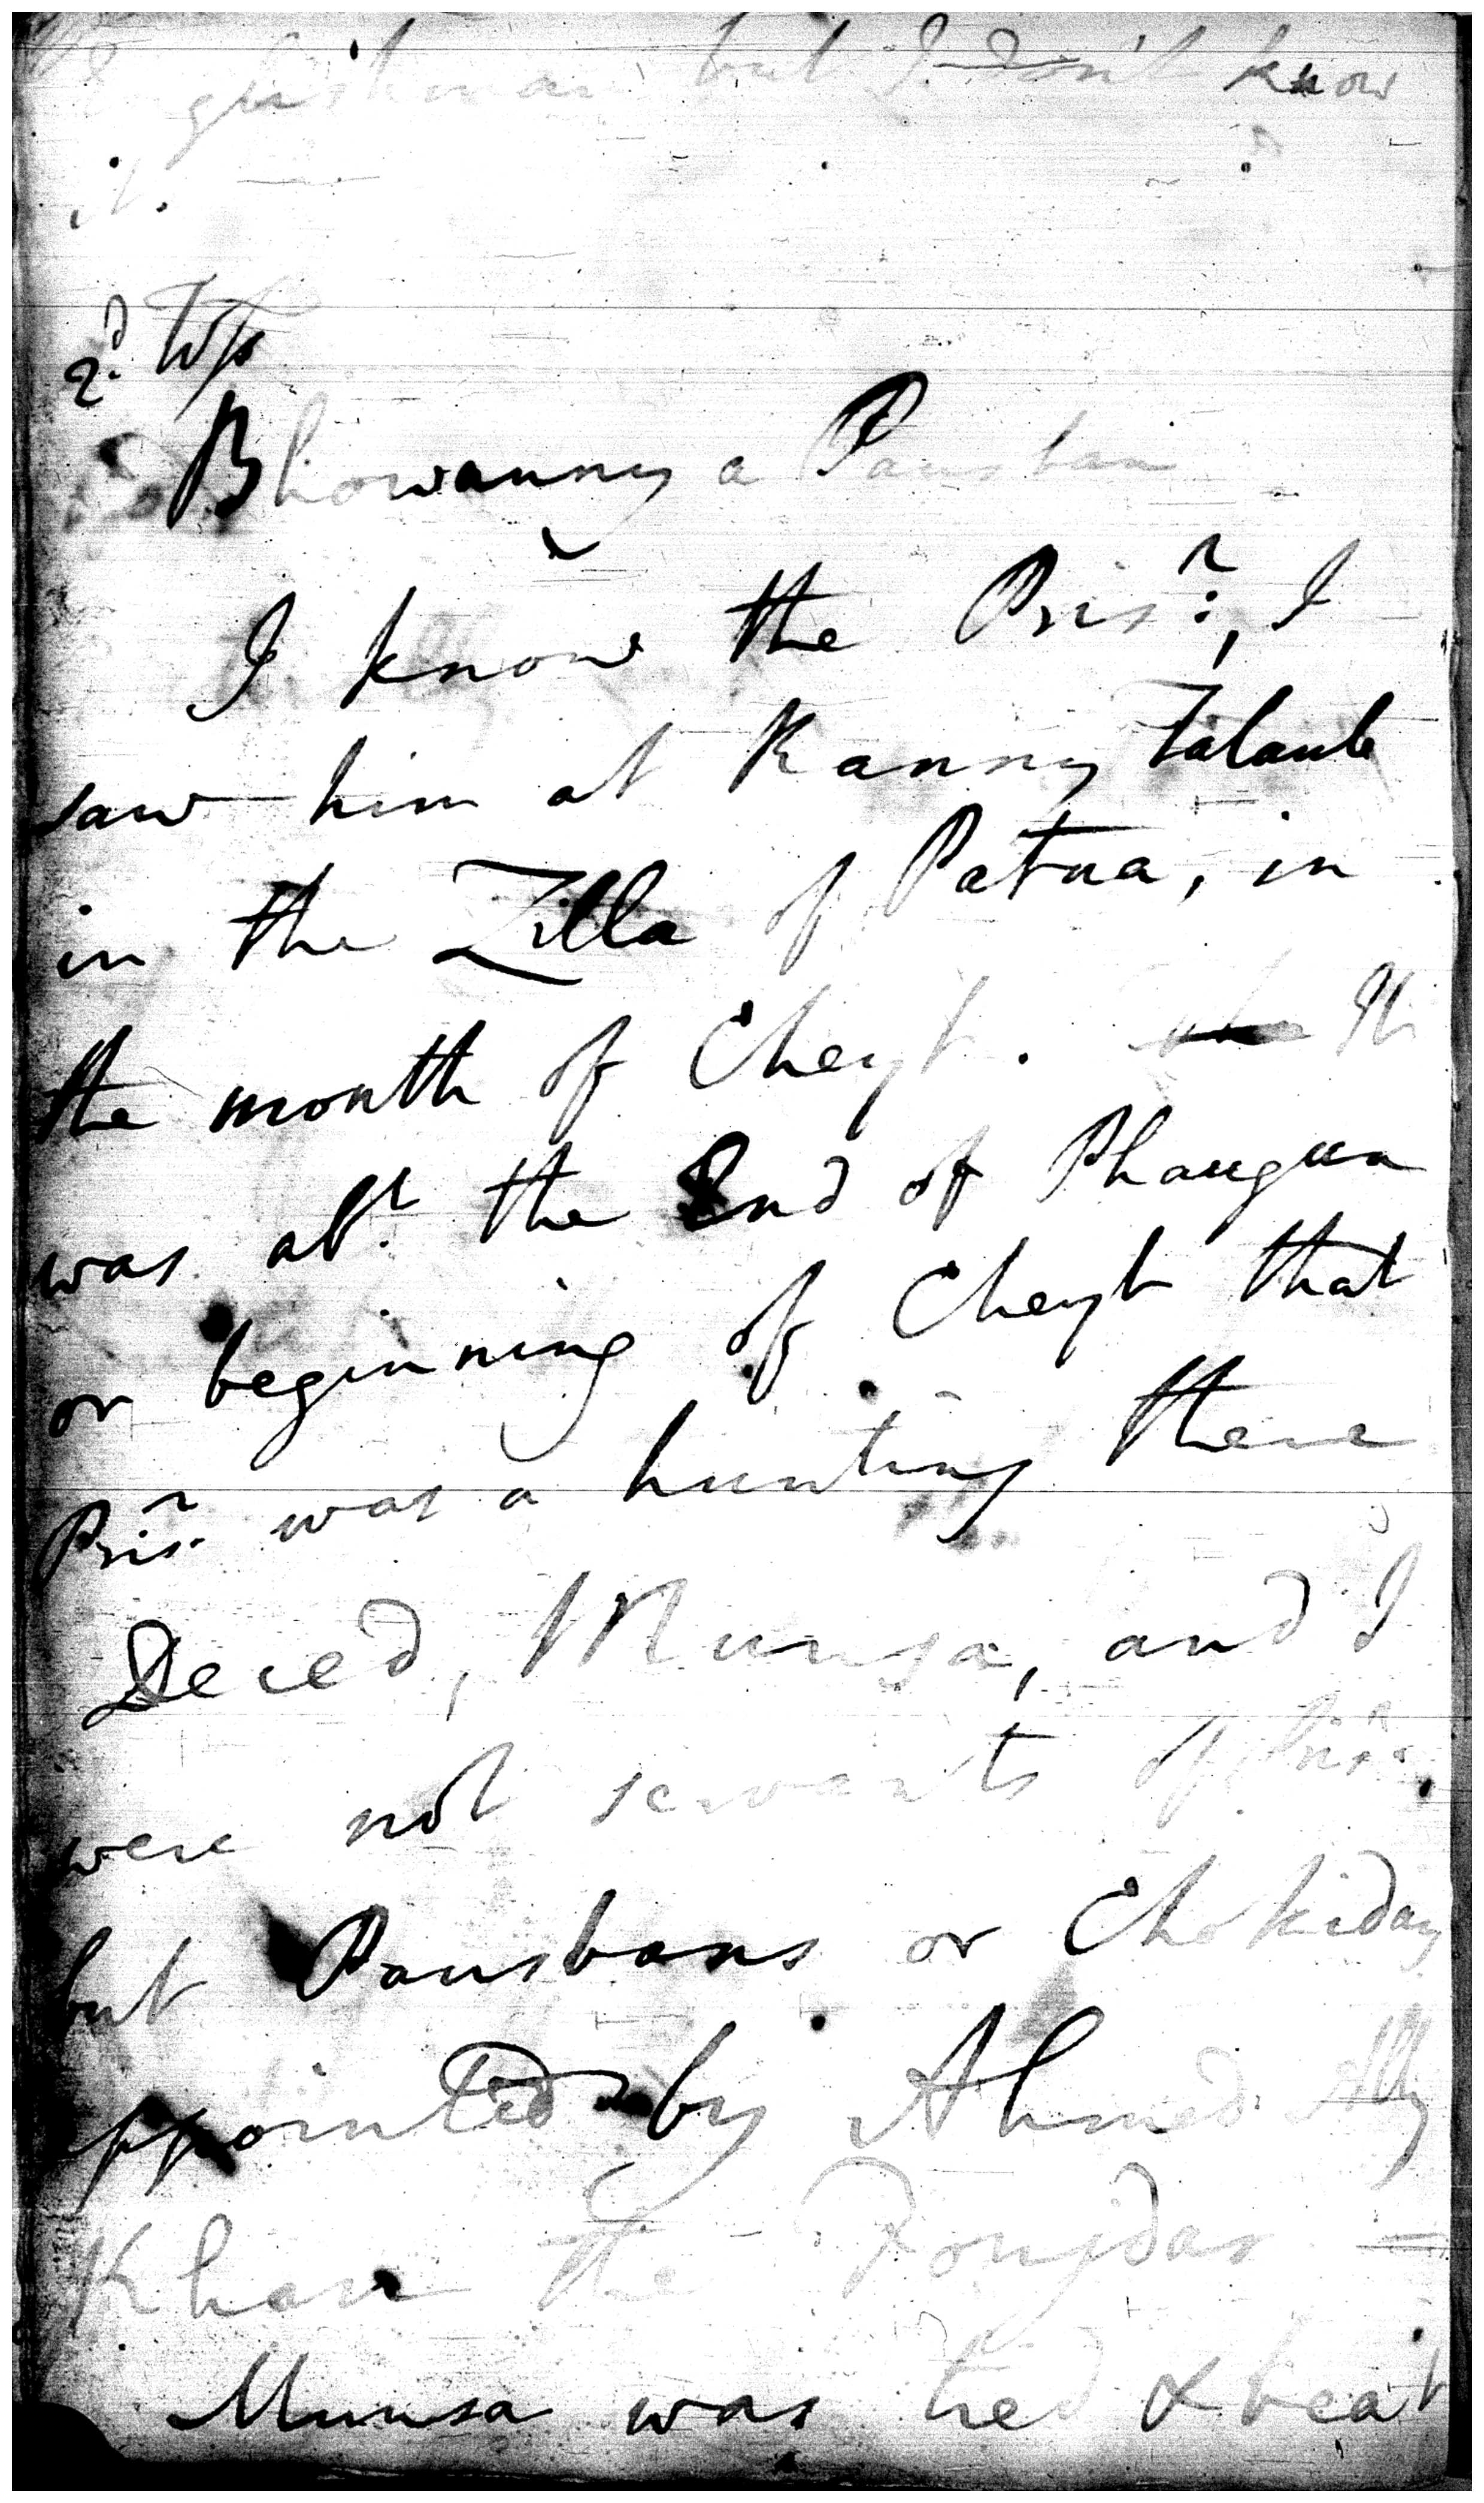 Englishman but I don't know
it.
2d Wts
Bhowanny a Pausban
I know the Prisr:, I
saw him at Kanny Talaub
in the Zilla of Patna, in
the month of Cheyt. It
was abt. the End of Phaugun
or beginning of Cheyt that
Prisr. was a hunting there
Deced, Munsa, and I
were not servants of Prisr:
but Pausbans or Chokidars
appointed by Ahmed Ally
Khan the Foujdar —
Munsa was tied & beat